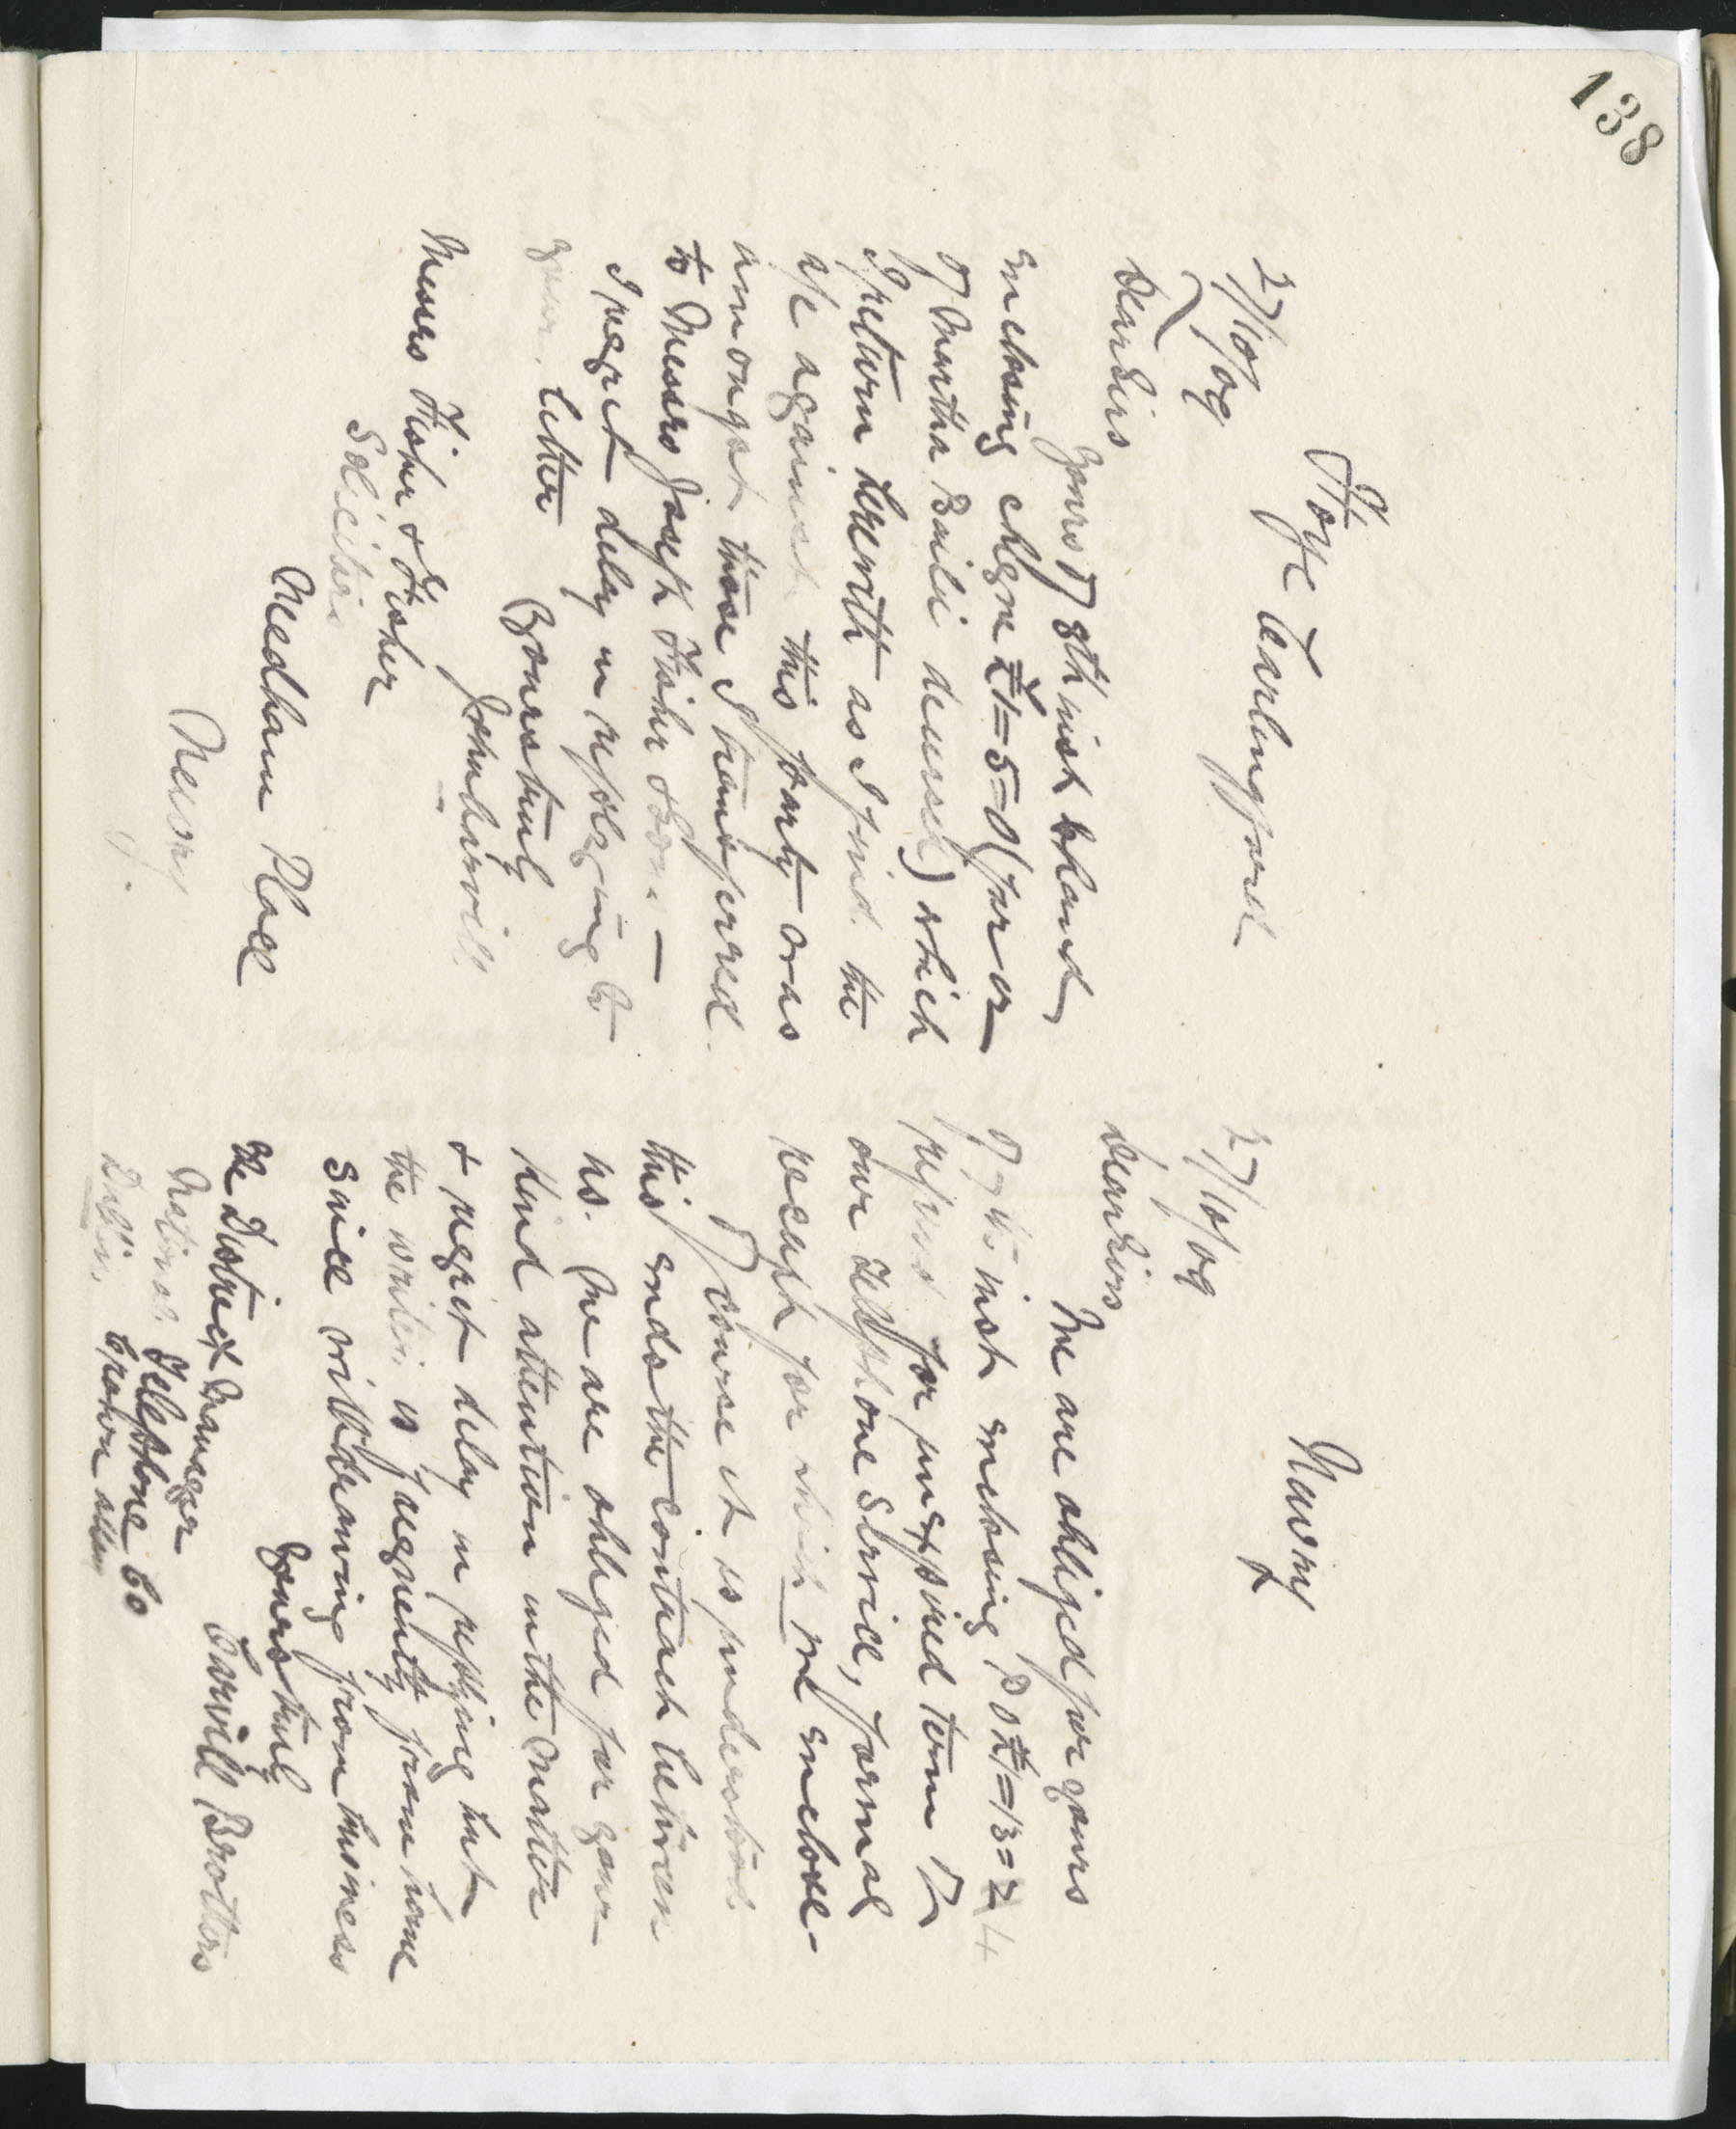 138
Hoye Carlingford
27/10/09
Dear Sirs
Yours of 8th inst to hand
enclosing cheque £1=5=0 (for or
of Martha Baili deceased) which
I return herewith as I find the
a/c against this party was
amongst those I transferred
to Messrs Joseph Fisher & Son. —
I regret delay in replying to
your letter
Yours truly
John Farrell
Messrs Fisher & Fisher
Solicitors
Needham Place
Newry
Newry
27/10/09
Dear Sirs
We are obliged for yours
of 9th inst enclosing P O £1=13=2 4
refund for unexpired term of
our telephone service, formal
receipt for which we enclose -
Of course it is understood
this ends the contract between
us. We are obliged for your
kind attention in the matter
& regret delay in replying but
the writer is frequently from home
since withdrawing from business
Yours truly
Farrell Brothers
The District Manager
National Telephone Co
Crown Alley
Dublin